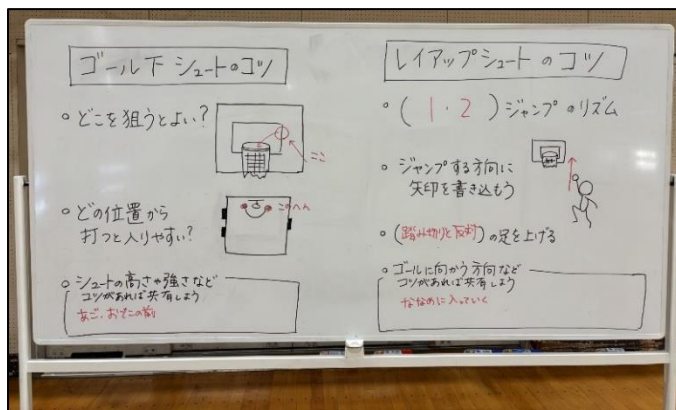 ゴール下シュートのコツ
○どこを狙うとよい?
ここ
○どの位置から
打つと入りやすい?
このへん
○シュートの高さや強さなど
コツがあれば共有しよう
あご・おでこの前
レイアップシュートのコツ
○(1・2)ジャンプのリズム
○ジャンプする方向に
矢印を書き込もう
○(踏み切りと反対)の足を上げる
○ゴールに向かう方向など
コツがあれば共有しよう
ななめに入っていく